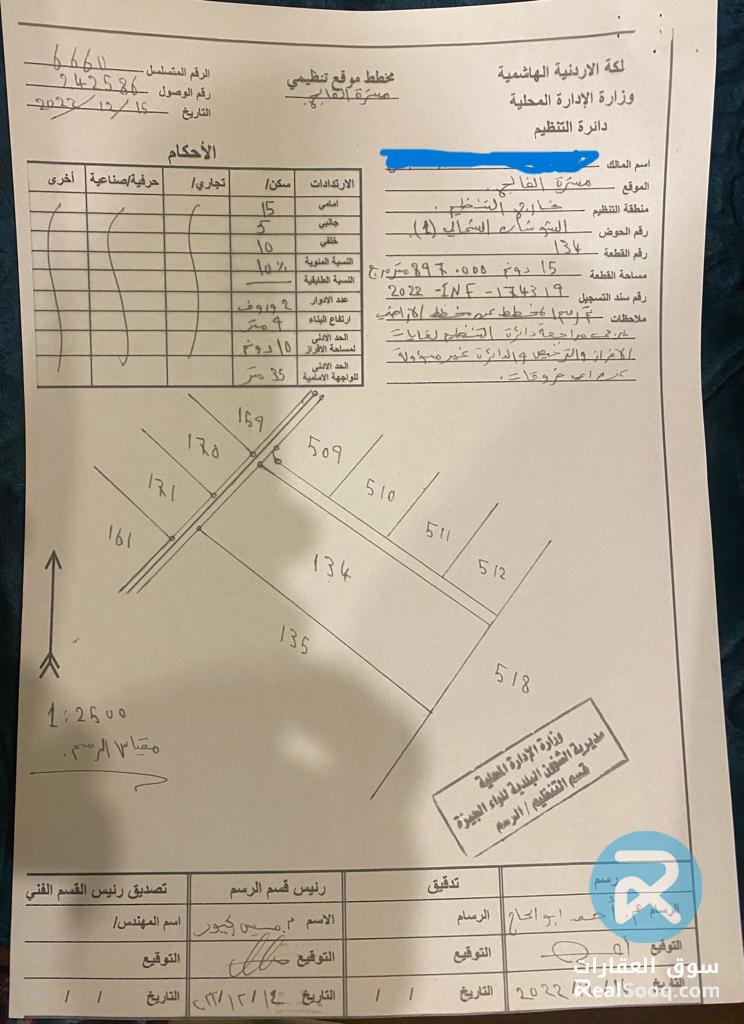 لكة الاردنية الهاشمية
وزارة الإدارة المحلية
دائرة التنظيم
مخطط موقع تنظيمي
مسترة الفالح
الرقم المتسلسل 6660
رقم الوصول 242586
التاريخ 2022/12/15
اسم المالك
الموقع مسترة الفالح
منطقة التنظيم خارج التنظيم
رقم الحوض الشمالي (1)
رقم القطعة 134
مساحة القطعة 15 دونم 897.000 متر مربع
رقم سند التسجيل 2022-INF-174319
ملاحظات تم رسم المخطط عن مخطط الاراضي
يرجى مراجعة دائرة التنظيم لغايات
الافراز والترخيص والدائرة غير مسؤولة
عن اي فروقات.
الأحكام
الارتدادات سكن/ تجاري/ حرفية/صناعية أخرى
امامي 15
جانبي 5
خلفي 10
النسبة المئوية 10%
النسبة الطابقية
عدد الادوار 2 وروف
ارتفاع البناء 9 متر
الحد الادنى لمساحة الافراز 10 دونم
الحد الادنى للواجهة الامامية 35 متر
159
170
171
161
509
510
511
512
134
135
518
1:2500
مقياس الرسم.
وزارة الإدارة المحلية
مديرية الشؤون البلدية للواء الجيزة
قسم التنظيم / الرسم
رسم تدقيق رئيس قسم الرسم تصديق رئيس القسم الفني
الرسام أحمد ابو الحاج الرسام الاسم م. اسم المهندس/
التوقيع التوقيع التوقيع التوقيع
التاريخ 2022 التاريخ / / التاريخ ٢٢/١٢/١٤ التاريخ / /
سوق العقارات
RealSooq.com